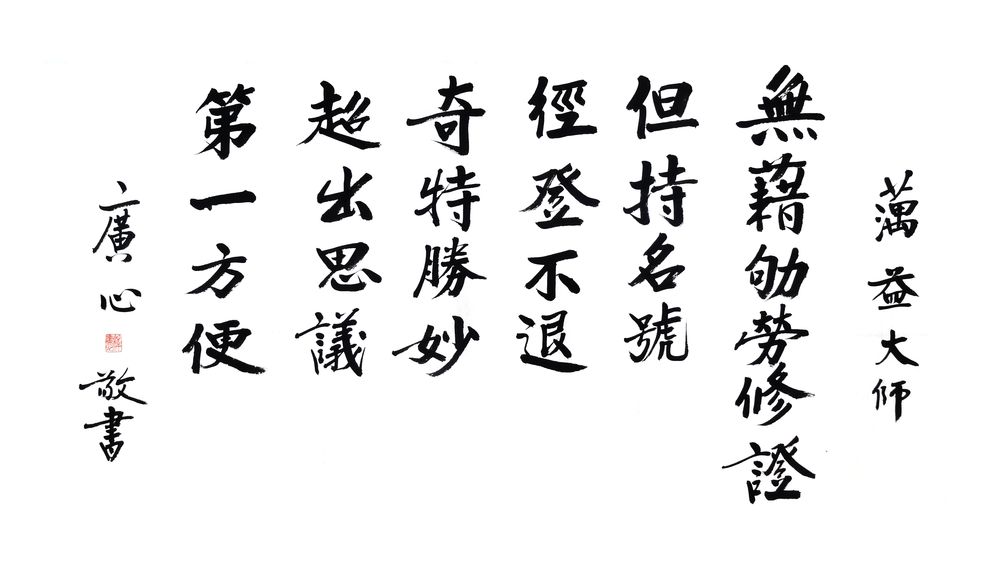 蕅益大师
無藉劬勞修證
但持名號
徑登不退
奇特勝妙
超出思議
第一方便
廣心
敬書